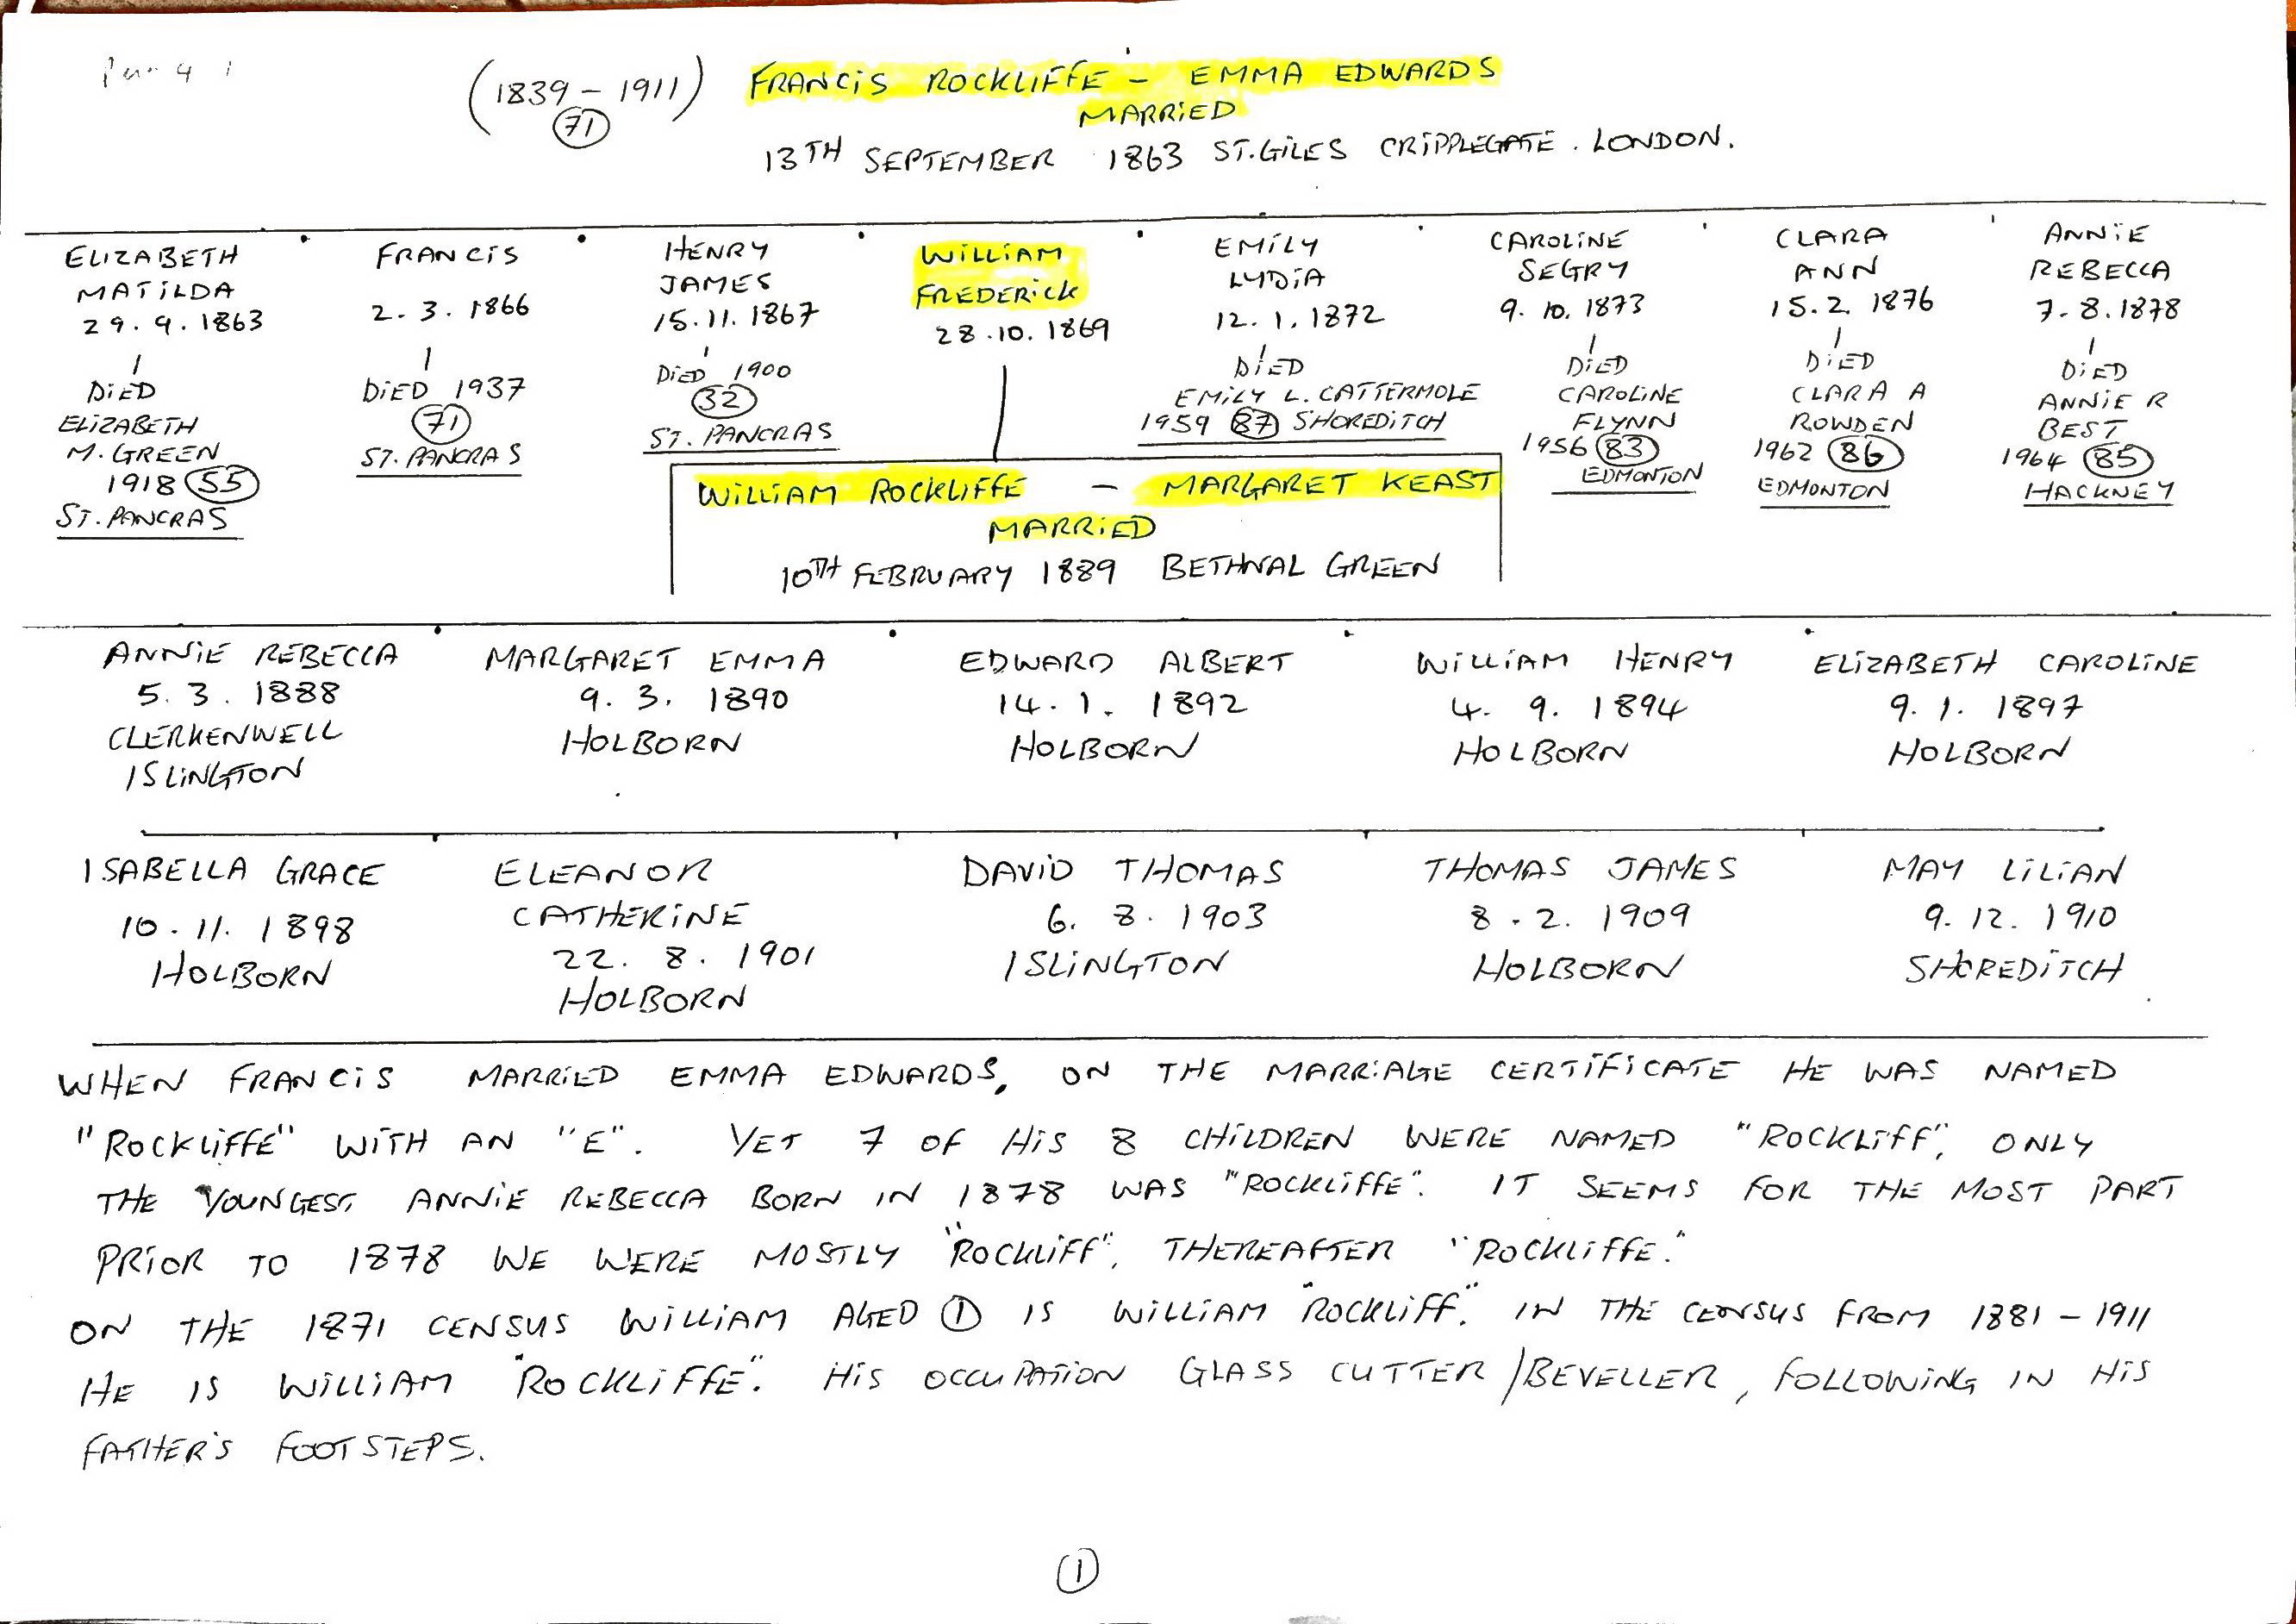 (1839 - 1911) FRANCIS ROCKLIFFE - EMMA EDWARDS
71
MARRIED
13TH SEPTEMBER 1863 ST. GILES CRIPPLEGATE. LONDON.
ELIZABETH
MATILDA
29.9.1863
DIED
ELIZABETH
M. GREEN
1918 55
ST. PANCRAS
FRANCIS
2.3.1866
DIED 1937
71
ST. PANCRAS
HENRY
JAMES
15.11.1867
DIED 1900
32
ST. PANCRAS
WILLIAM
FREDERICK
28.10.1869
EMILY
LYDIA
12.1.1872
DIED
EMILY L. CATTERMOLE
1959 87 SHOREDITCH
CAROLINE
SEGRY
9.10.1873
DIED
CAROLINE
FLYNN
1956 83
EDMONTON
CLARA
ANN
15.2.1876
DIED
CLARA A
ROWDEN
1962 86
EDMONTON
ANNIE
REBECCA
7.8.1878
DIED
ANNIE R
BEST
1964 85
HACKNEY
WILLIAM ROCKLIFFE - MARGARET KEAST
MARRIED
10TH FEBRUARY 1889 BETHNAL GREEN
ANNIE REBECCA
5.3.1888
CLERKENWELL
ISLINGTON
MARGARET EMMA
9.3.1890
HOLBORN
EDWARD ALBERT
14.1.1892
HOLBORN
WILLIAM HENRY
4.9.1894
HOLBORN
ELIZABETH CAROLINE
9.1.1897
HOLBORN
ISABELLA GRACE
10.11.1898
HOLBORN
ELEANOR
CATHERINE
22.8.1901
HOLBORN
DAVID THOMAS
6.8.1903
ISLINGTON
THOMAS JAMES
8.2.1909
HOLBORN
MAY LILIAN
9.12.1910
SHOREDITCH
WHEN FRANCIS MARRIED EMMA EDWARDS, ON THE MARRIAGE CERTIFICATE HE WAS NAMED
"ROCKLIFFE" WITH AN "E". YET 7 OF HIS 8 CHILDREN WERE NAMED "ROCKLIFF", ONLY
THE YOUNGEST, ANNIE REBECCA BORN IN 1878 WAS "ROCKLIFFE". IT SEEMS FOR THE MOST PART
PRIOR TO 1878 WE WERE MOSTLY "ROCKLIFF", THEREAFTER "ROCKLIFFE."
ON THE 1871 CENSUS WILLIAM AGED 1 IS WILLIAM "ROCKLIFF". IN THE CENSUS FROM 1881 - 1911
HE IS WILLIAM "ROCKLIFFE". HIS OCCUPATION GLASS CUTTER/BEVELLER, FOLLOWING IN HIS
FATHER'S FOOTSTEPS.
1